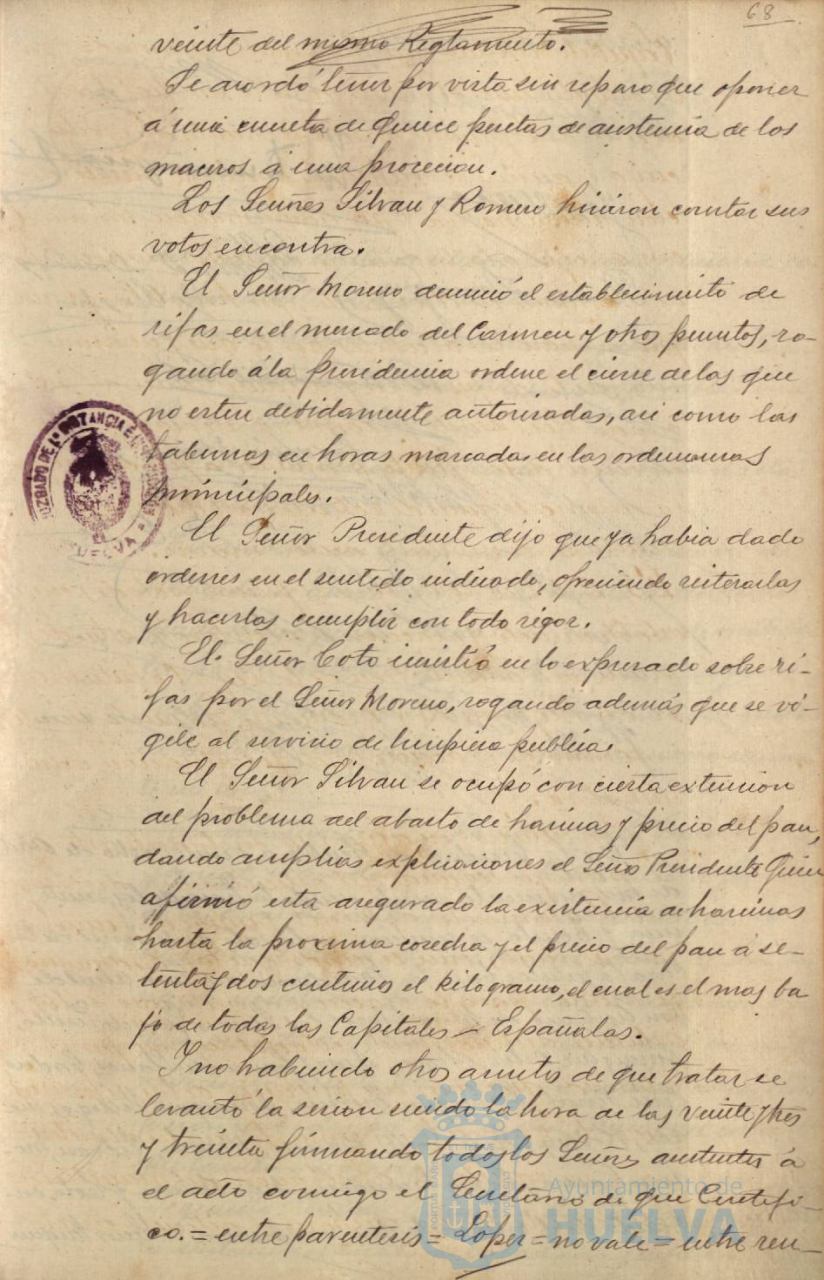 68
veinte del mismo Reglamento.
Se acordó tener por vista sin reparo que oponer
á una cuneta de quince pesetas de asistencia de los
maceros á una procecion.
Los Señores Silvan y Romero hicieron constar sus
votos en contra.
El Señor Moreno denunció el establecimiento de
rifas en el mercado del Carmen y otros puntos, ro-
gando á la Presidencia ordene el cierre de las que
no esten debidamente autorizadas, asi como las
tabernas en horas marcadas en las ordenanzas
municipales.
El Señor Presidente dijo que ya habia dado
ordenes en el sentido indicado, ofreciendo reiterarlas
y hacerlas cumplir con todo rigor.
El Señor Coto insistió en lo expresado sobre ri-
fas por el Señor Moreno, rogando además que se vi-
gile al servicio de limpieza publica.
El Señor Silvan se ocupó con cierta extencion
del problema del abasto de harinas y precio del pan,
dando amplias explicaciones el Señor Presidente Quien
afirmó esta asegurado la existencia de harinas
hasta la proxima cosecha y el precio del pan á se-
tenta y dos centimos el kilogramo, el cual es el mas ba
jo de todas las Capitales - Españolas.
Y no habiendo otros asuntos de que tratar se
levantó la sesion siendo la hora de las veinte y tres
y treinta firmando todos los Señores asistentes á
el acto comigo el Secretario de que Certifi-
co. = entre parentesis = Lopez = no vale = entre ren-
JUZGADO DE 1ª INSTANCIA E
HUELVA
Ayuntamiento de
HUELVA